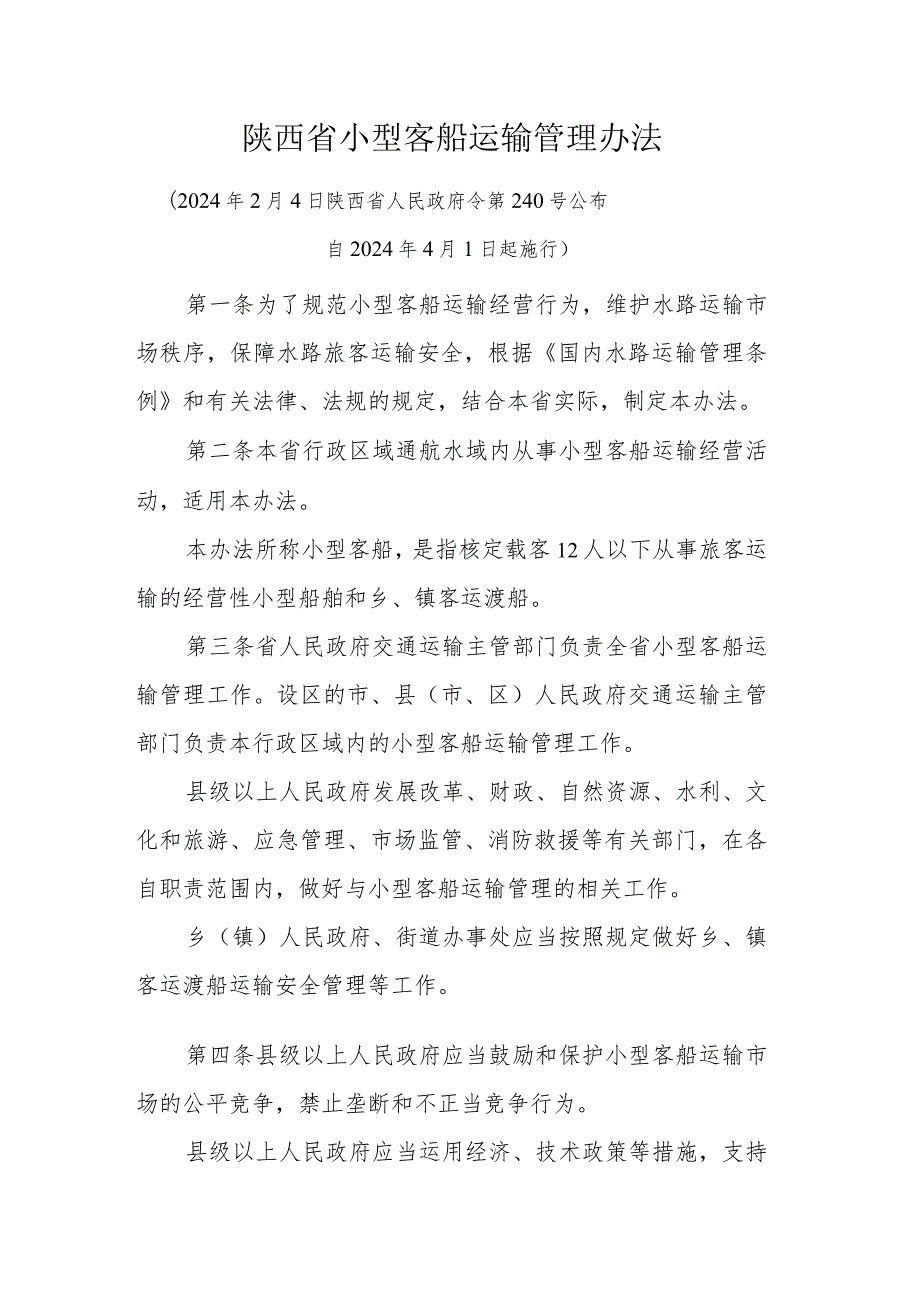 陕西省小型客船运输管理办法
（2024年2月4日陕西省人民政府令第240号公布
自2024年4月1日起施行）
第一条为了规范小型客船运输经营行为，维护水路运输市
场秩序，保障水路旅客运输安全，根据《国内水路运输管理条
例》和有关法律、法规的规定，结合本省实际，制定本办法。
第二条本省行政区域通航水域内从事小型客船运输经营活
动，适用本办法。
本办法所称小型客船，是指核定载客12人以下从事旅客运
输的经营性小型船舶和乡、镇客运渡船。
第三条省人民政府交通运输主管部门负责全省小型客船运
输管理工作。设区的市、县（市、区）人民政府交通运输主管
部门负责本行政区域内的小型客船运输管理工作。
县级以上人民政府发展改革、财政、自然资源、水利、文
化和旅游、应急管理、市场监管、消防救援等有关部门，在各
自职责范围内，做好与小型客船运输管理的相关工作。
乡（镇）人民政府、街道办事处应当按照规定做好乡、镇
客运渡船运输安全管理等工作。
第四条县级以上人民政府应当鼓励和保护小型客船运输市
场的公平竞争，禁止垄断和不正当竞争行为。
县级以上人民政府应当运用经济、技术政策等措施，支持